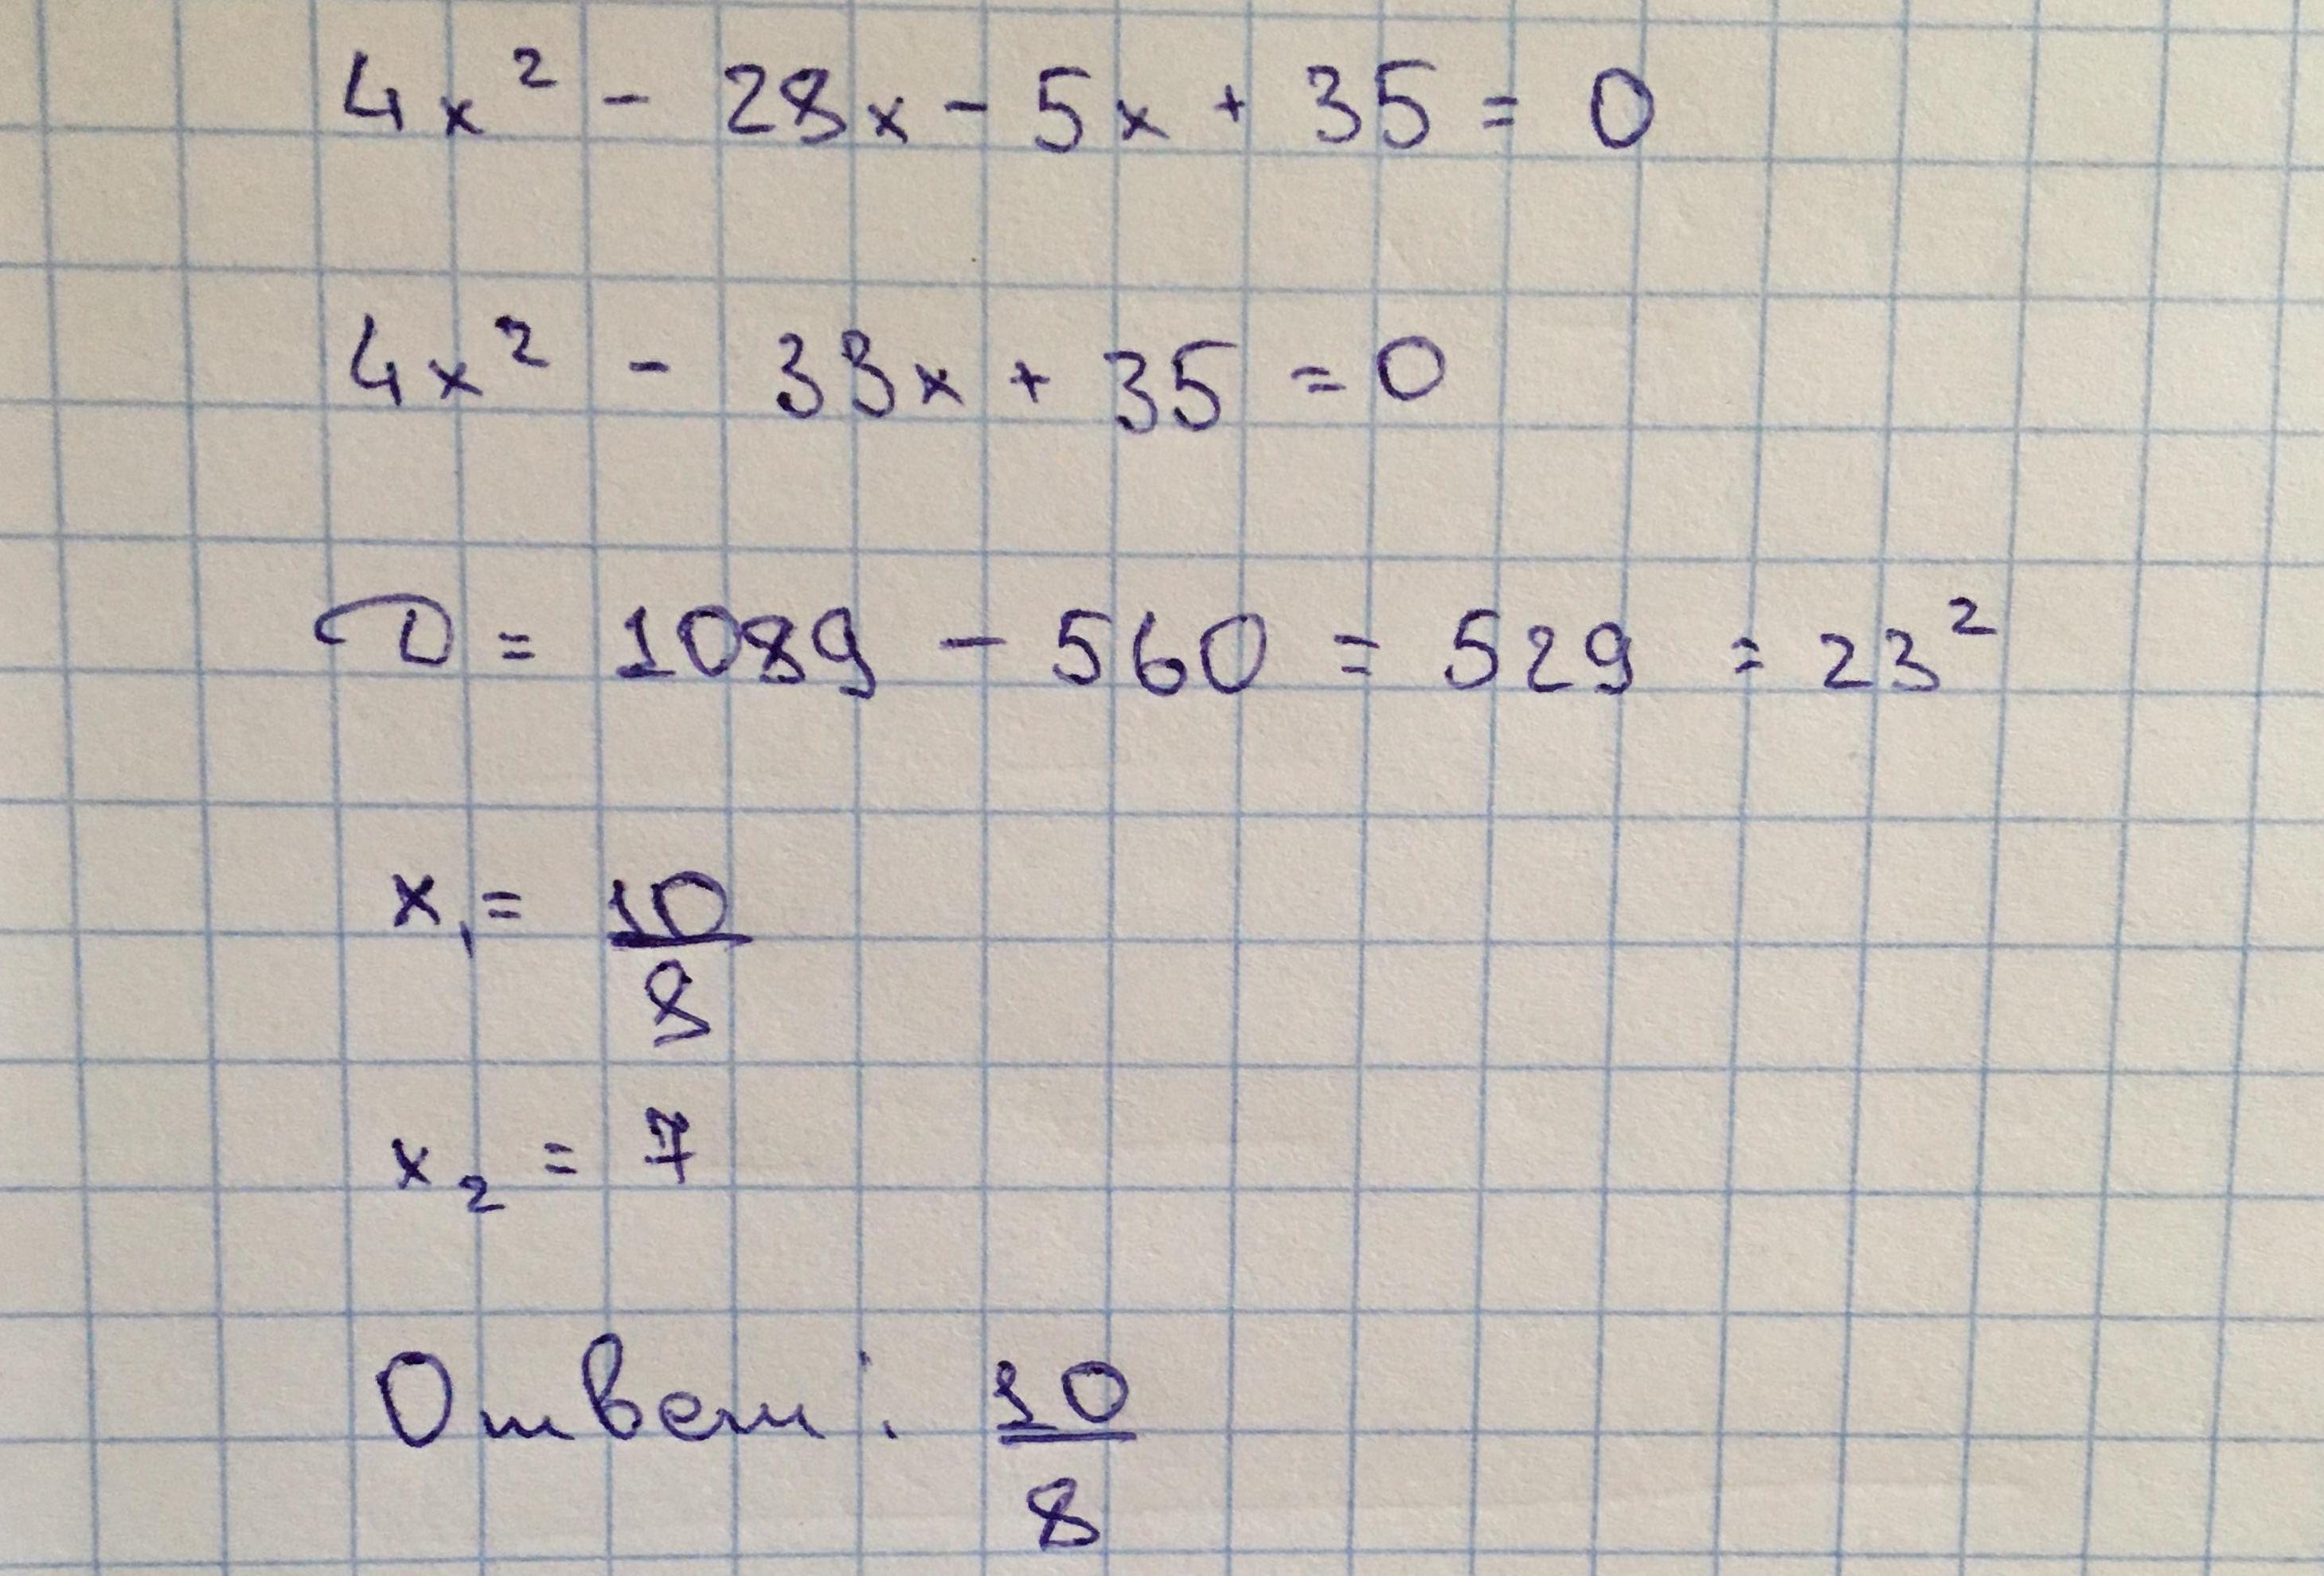 4x² - 28x - 5x + 35 = 0
4x² - 33x + 35 = 0
D = 1089 - 560 = 529 = 23²
x₁ = 10/8
x₂ = 7
Ответ: 10/8